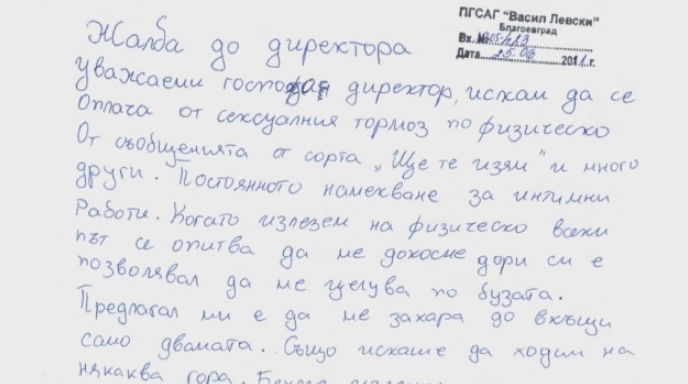 ПГСАГ "Васил Левски"
Благоевград
Вх. №
Дата 25.06 2011 г.
Жалба до директора
Уважаеми господин директор, искам да се
оплача от сексуалния тормоз по физическо
От съобщенията от сорта „Ще те изям" и много
други. Постоянното намекване за интимни
работи. Когато излезем на физическо всеки
път се опитва да ме докосне дори си е
позволявал да ме целува по бузата.
Предлагал ми е да ме закара до вкъщи
само двамата. Също искаше да ходим на
някаква гора.